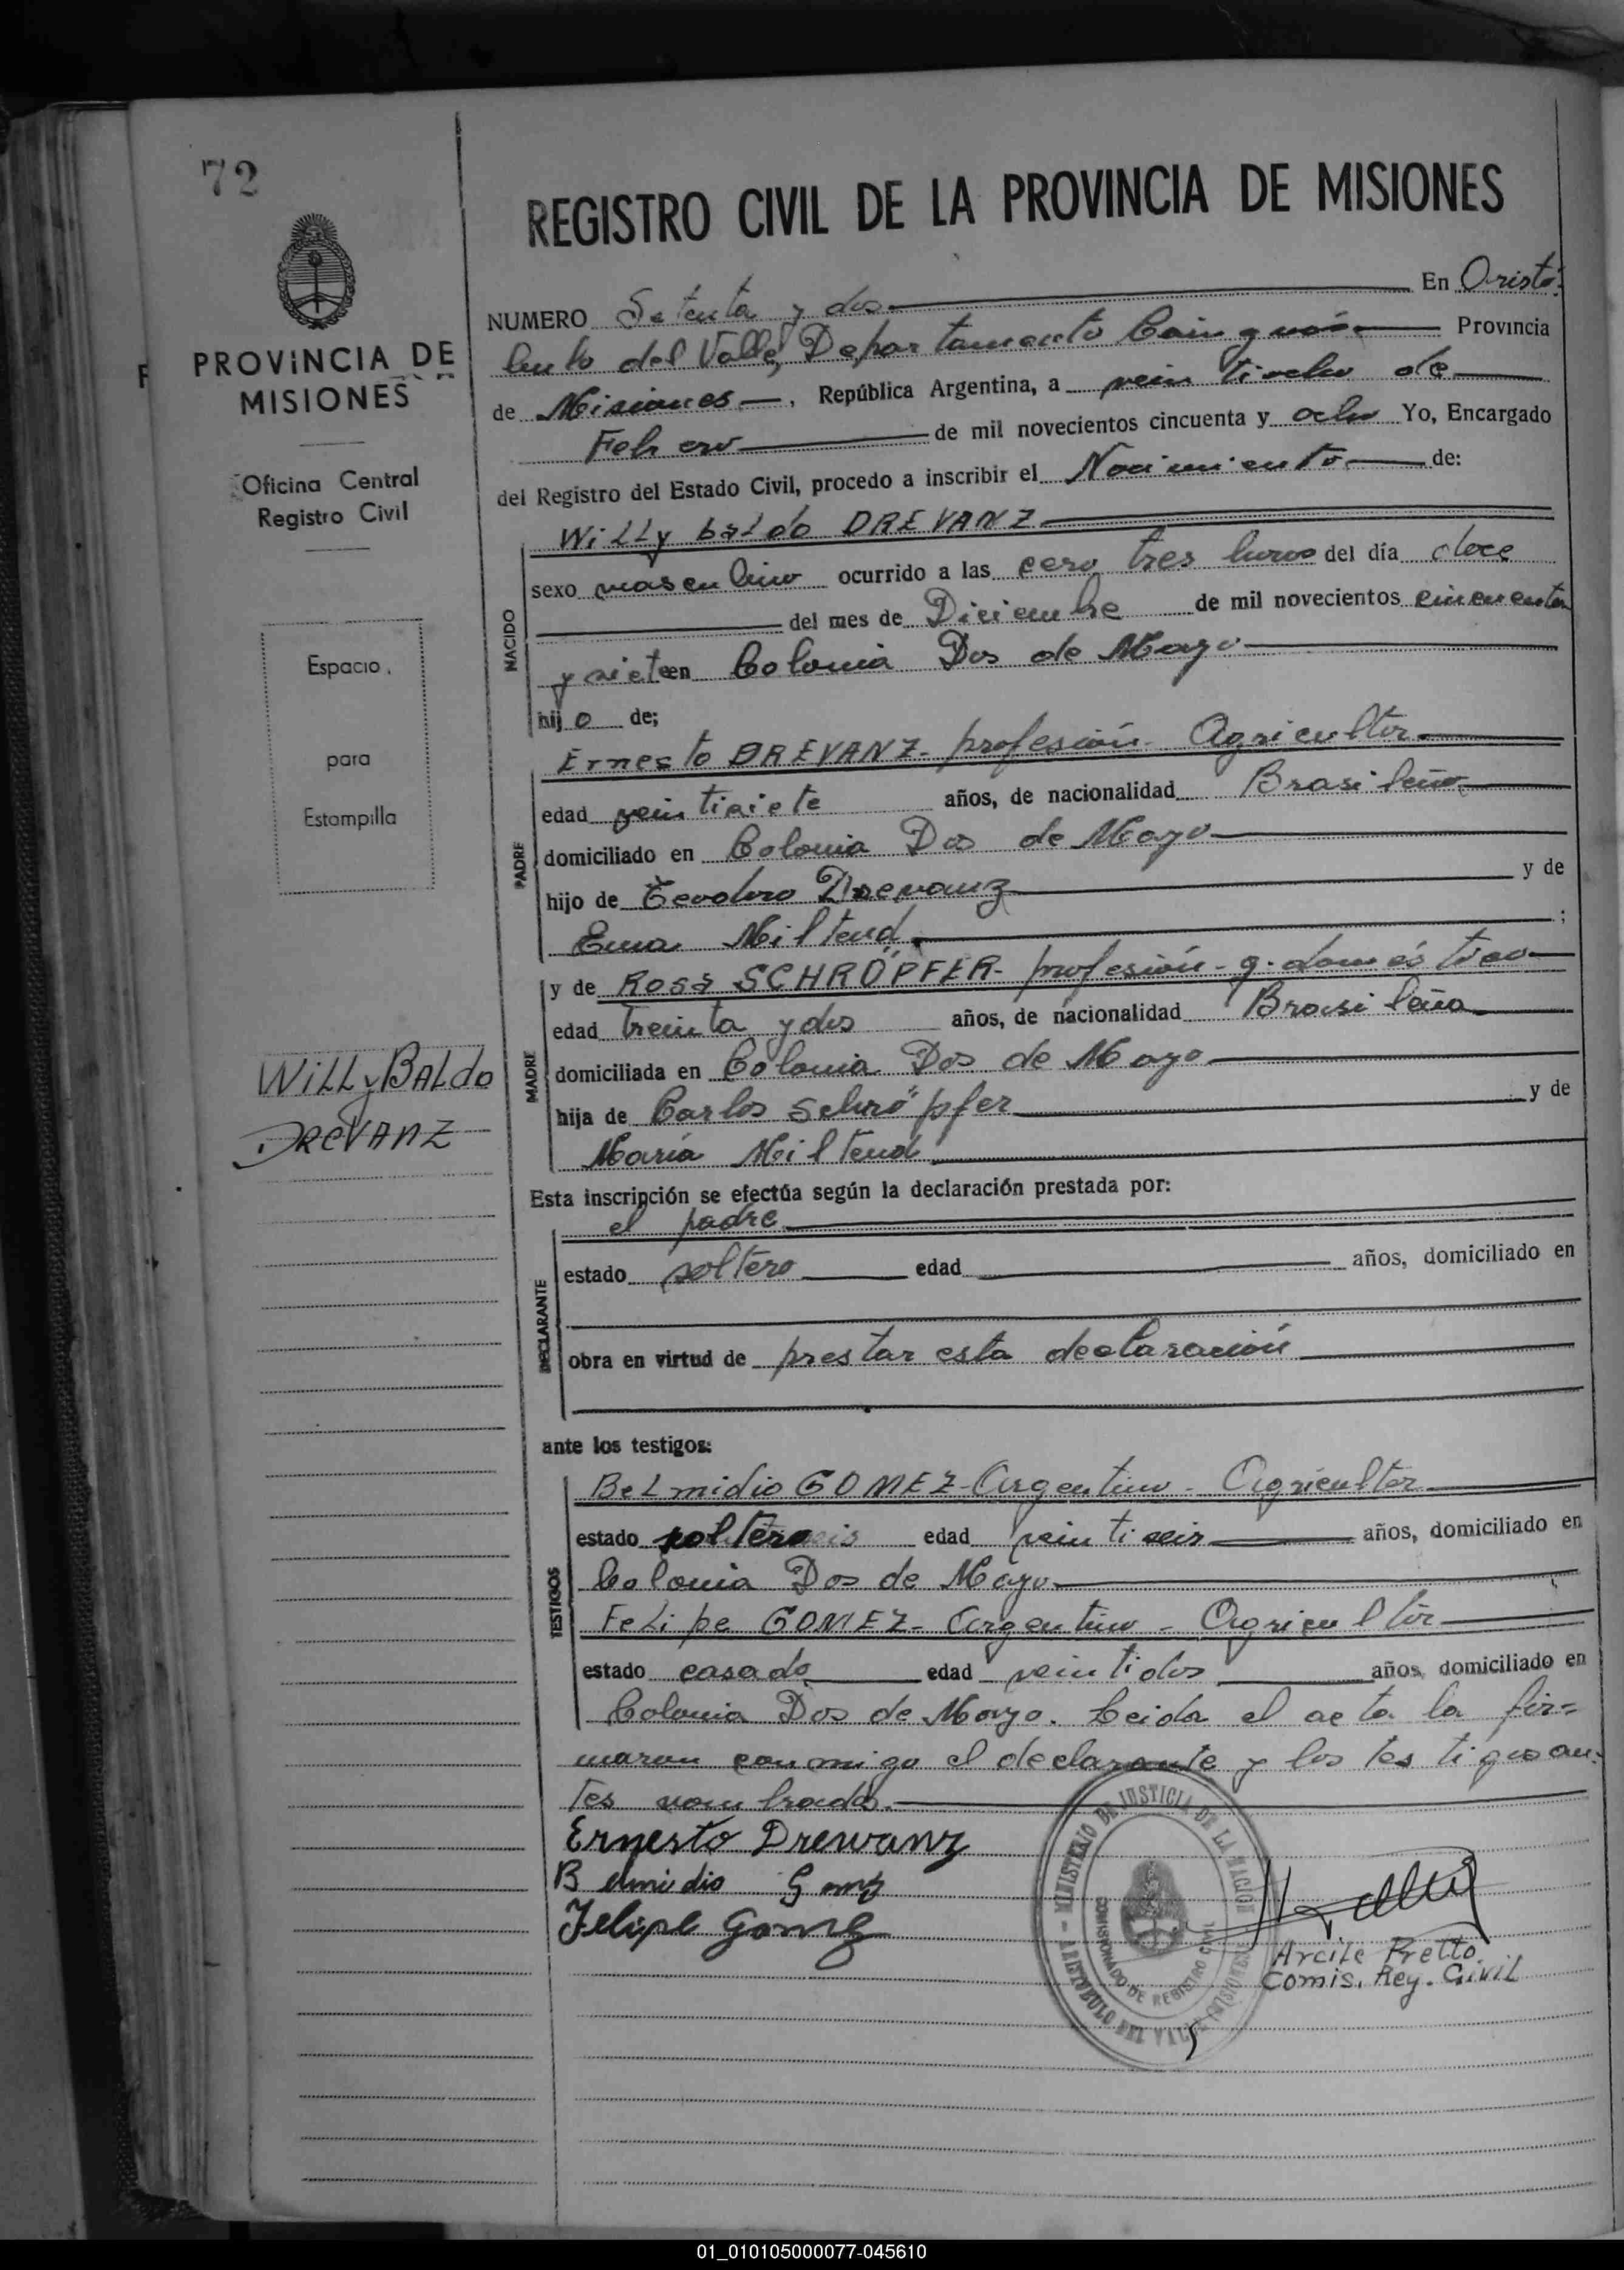 72
REGISTRO CIVIL DE LA PROVINCIA DE MISIONES
PROVINCIA DE
MISIONES
Oficina Central
Registro Civil
Espacio
para
Estampilla
WiLLyBALdo
DREVANZ
NUMERO Setenta y dos En Aristó-
bulo del Valle, Departamento Cainguás Provincia
de Misiones, República Argentina, a veintiocho de
Febrero de mil novecientos cincuenta y ocho Yo, Encargado
del Registro del Estado Civil, procedo a inscribir el Nacimiento de:
NACIDO
WiLLy baLdo DREVANZ
sexo masculino ocurrido a las cero tres horas del día doce
del mes de Diciembre de mil novecientos cincuenta
y siete en Colonia Dos de Mayo
hijo de;
PADRE
Ernesto DREVANZ- profesión- Agricultor
edad veintisiete años, de nacionalidad Brasileño
domiciliado en Colonia Dos de Mayo
hijo de Teodoro Drevanz y de
Ema Miltend ;
MADRE
y de Rosa SCHRÖPFER- profesión- q. doméstico
edad treinta y dos años, de nacionalidad Brasileña
domiciliada en Colonia Dos de Mayo
hija de Carlos Schröpfer y de
María Miltend
Esta inscripción se efectúa según la declaración prestada por:
DECLARANTE
el padre
estado soltero edad años, domiciliado en
obra en virtud de prestar esta declaración
ante los testigos:
TESTIGOS
BeLmidio GOMEZ-Argentino- Agricultor
estado soltero edad veintiseis años, domiciliado en
Colonia Dos de Mayo
FeLipe GOMEZ- Argentino - Agricultor
estado casado edad veintidos años, domiciliado en
Colonia Dos de Mayo. Leida el acta la fir=
maron conmigo el declarante y los testigos an-
tes nombrados.
Ernesto Drewanz
Belmidio Gomz
Felipe Gomez
MINISTERIO DE JUSTICIA DE LA NACION
COMISIONADO DE REGISTRO CIVIL
ARISTOBULO DEL VALLE (MISIONES)
Arcile Pretto
Comis. Reg. Civil
01_010105000077-045610